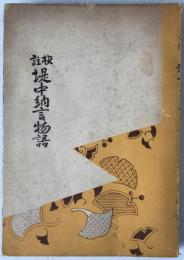 校註 堤中納言物語